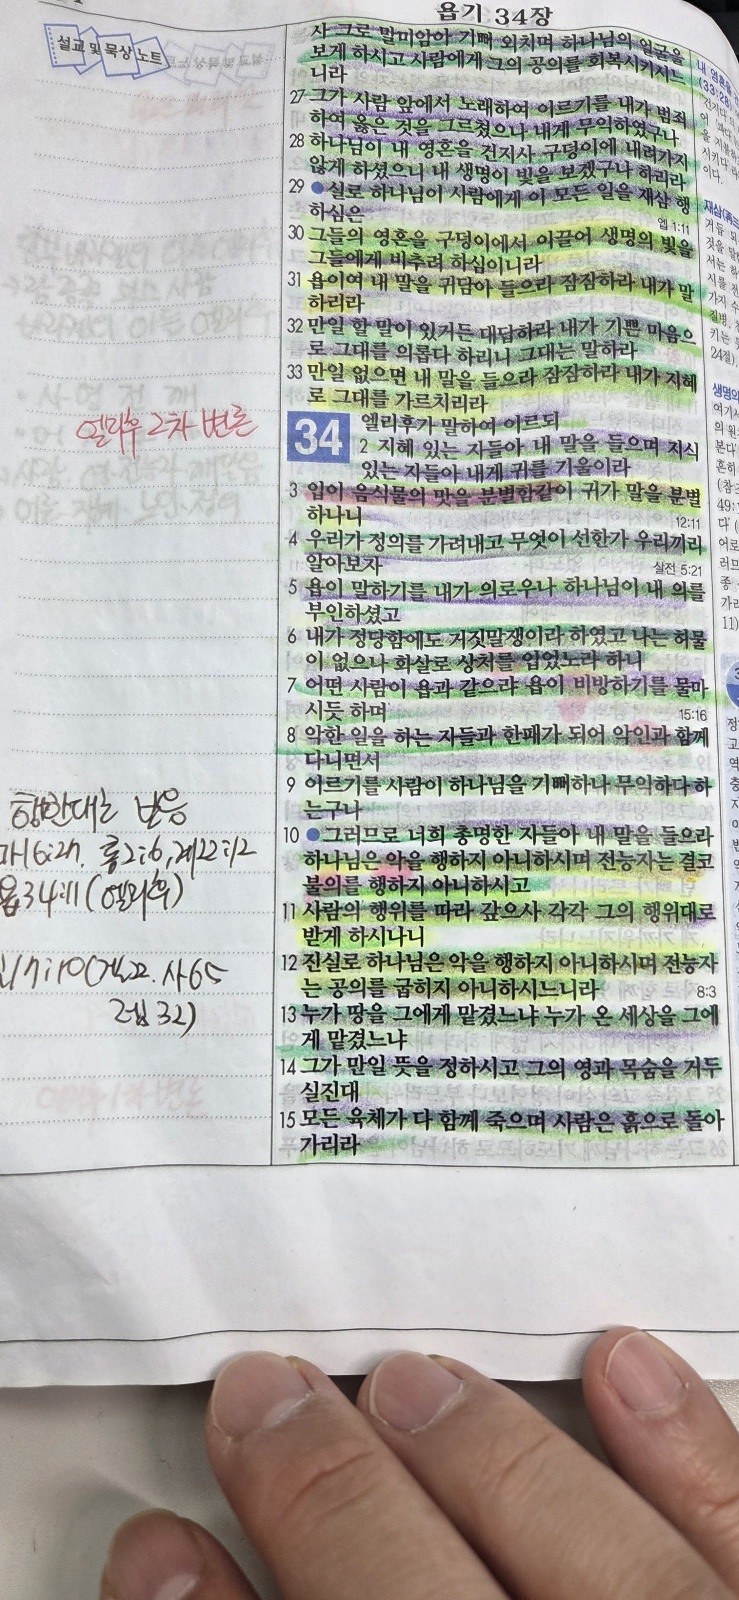 욥기 34장
설교 및 묵상 노트
사 그로 말미암아 기뻐 외치며 하나님의 얼굴을
보게 하시고 사람에게 그의 공의를 회복시키시느
니라
27 그가 사람 앞에서 노래하여 이르기를 내가 범죄
하여 옳은 것을 그르쳤으나 내게 무익하였구나
28 하나님이 내 영혼을 건지사 구덩이에 내려가지
않게 하셨으니 내 생명이 빛을 보겠구나 하리라
29 ●실로 하나님이 사람에게 이 모든 일을 재삼 행
하심은 엡 1:11
30 그들의 영혼을 구덩이에서 이끌어 생명의 빛을
그들에게 비추려 하심이니라
31 욥이여 내 말을 귀담아 들으라 잠잠하라 내가 말
하리라
32 만일 할 말이 있거든 대답하라 내가 기쁜 마음으
로 그대를 의롭다 하리니 그대는 말하라
33 만일 없으면 내 말을 들으라 잠잠하라 내가 지혜
로 그대를 가르치리라
엘리후 2차 변론
34 엘리후가 말하여 이르되
2 지혜 있는 자들아 내 말을 들으며 지식
있는 자들아 내게 귀를 기울이라
3 입이 음식물의 맛을 분별함같이 귀가 말을 분별
하나니 12:11
4 우리가 정의를 가려내고 무엇이 선한가 우리끼리
알아보자 살전 5:21
5 욥이 말하기를 내가 의로우나 하나님이 내 의를
부인하셨고
6 내가 정당함에도 거짓말쟁이라 하였고 나는 허물
이 없으나 화살로 상처를 입었노라 하니
7 어떤 사람이 욥과 같으랴 욥이 비방하기를 물마
시듯 하며 15:16
8 악한 일을 하는 자들과 한패가 되어 악인과 함께
다니면서
9 이르기를 사람이 하나님을 기뻐하나 무익하다 하
는구나
10 ●그러므로 너희 총명한 자들아 내 말을 들으라
하나님은 악을 행하지 아니하시며 전능자는 결코
불의를 행하지 아니하시고
11 사람의 행위를 따라 갚으사 각각 그의 행위대로
받게 하시나니
12 진실로 하나님은 악을 행하지 아니하시며 전능자
는 공의를 굽히지 아니하시느니라 8:3
13 누가 땅을 그에게 맡겼느냐 누가 온 세상을 그에
게 맡겼느냐
14 그가 만일 뜻을 정하시고 그의 영과 목숨을 거두
실진대
15 모든 육체가 다 함께 죽으며 사람은 흙으로 돌아
가리라
행한대로 받음
마16:27, 롬2:6, 계22:12
욥34:11 (엘리후)
17:10 사65
렘32)